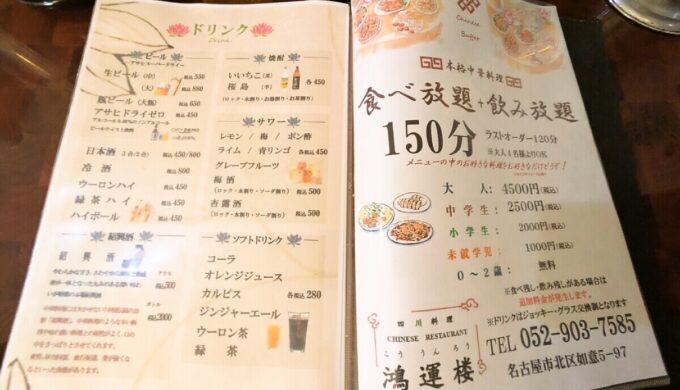 ドリンク
Drink
ビール
アサヒスーパードライ
生ビール (中) 税込 550
(大) 税込 880
瓶ビール (大瓶) 税込 650
アサヒドライゼロ 税込 450
日本酒 1合/2合 税込 450/800
冷酒 税込 800
ウーロンハイ 税込 450
緑茶ハイ 税込 450
ハイボール 税込 450
紹興酒
紹興酒
グラス
税込500
ボトル
税込2000
焼酎
いいちこ (麦)
桜島 (芋) 各 450
(ロック・水割り・お湯割り・お茶割り)
サワー
レモン / 梅 / ポン酢
ライム / 青リンゴ 各税込 450
グレープフルーツ
梅酒 税込 500
(ロック・水割り・ソーダ割り)
杏露酒 税込 500
(ロック・水割り・ソーダ割り)
ソフトドリンク
コーラ
オレンジジュース
カルピス 各税込 280
ジンジャーエール
ウーロン茶
緑茶
Chinese
Buffet
本格中華料理
食べ放題+飲み放題
150分 ラストオーダー120分
※大人4名様よりOK
メニューの中のお好きな料理をお好きなだけどうぞ!
大人: 4500円(税込)
中学生: 2500円(税込)
小学生: 2000円(税込)
未就学児: 1000円(税込)
0～2歳: 無料
※食べ残し・飲み残しがある場合は
追加料金が発生します。
※ドリンクはジョッキー・グラス交換制となります
四川料理
CHINESE RESTAURANT
こううんろう
鴻運楼
TEL 052-903-7585
名古屋市北区如意5-97